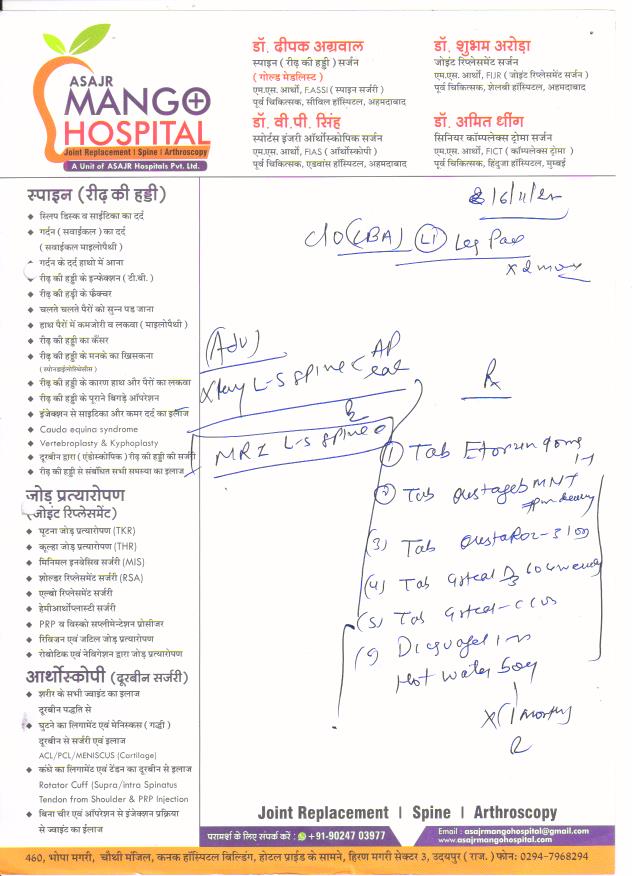 ASAJR
MANGO
HOSPITAL
Joint Replacement | Spine | Arthroscopy
A Unit of ASAJR Hospitals Pvt. Ltd.
डॉ. दीपक अग्रवाल
स्पाइन (रीढ़ की हड्डी) सर्जन
(गोल्ड मेडलिस्ट)
एम.एस. आर्थो, F.ASSI (स्पाइन सर्जरी)
पूर्व चिकित्सक, सीविल हॉस्पिटल, अहमदाबाद
डॉ. शुभम अरोड़ा
जोइंट रिप्लेसमेंट सर्जन
एम.एस. आर्थो, FIJR (जोइंट रिप्लेसमेंट सर्जन)
पूर्व चिकित्सक, शेलबी हॉस्पिटल, अहमदाबाद
डॉ. वी.पी. सिंह
स्पोर्टस इंजरी ऑर्थोस्कोपिक सर्जन
एम.एस. आर्थो, FIAS (ऑर्थोस्कोपी)
पूर्व चिकित्सक, एडवांस हॉस्पिटल, अहमदाबाद
डॉ. अमित धींग
सिनियर कॉम्पलेक्स ट्रोमा सर्जन
एम.एस. आर्थो, FICT (कॉम्पलेक्स ट्रोमा)
पूर्व चिकित्सक, हिंदुजा हॉस्पिटल, मुम्बई
स्पाइन (रीढ़ की हड्डी)
स्लिप डिस्क व साईटिका का दर्द
गर्दन (सवाईकल) का दर्द
(सवाईकल माइलोपैथी)
गर्दन के दर्द हाथो में आना
रीढ़ की हड्डी के इन्फेक्शन (टी.बी.)
रीढ़ की हड्डी के फ्रैक्चर
चलते चलते पैरों को सुन्न पड़ जाना
हाथ पैरों में कमजोरी व लकवा (माइलोपैथी)
रीढ़ की हड्डी का कैंसर
रीढ़ की हड्डी के मनके का खिसकना
(स्पोनडाईलोस्थिेसीस)
रीढ़ की हड्डी के कारण हाथ और पैरों का लकवा
रीढ़ की हड्डी के पूराने बिगड़े ऑपरेशन
इंजेक्शन से साइटिका और कमर दर्द का इलाज
Cauda equina syndrome
Vertebroplasty & Kyphoplasty
दूरबीन द्वारा (एंडोस्कोपिक) रीढ़ की हड्डी की सर्जरी
रीढ़ की हड्डी से संबंधित सभी समस्या का इलाज
जोड़ प्रत्यारोपण
(जोइंट रिप्लेसमेंट)
घूटना जोड़ प्रत्यारोपण (TKR)
कूल्हा जोड़ प्रत्यारोपण (THR)
मिनिमल इनवेसिव सर्जरी (MIS)
शोल्डर रिप्लेसमेंट सर्जरी (RSA)
एल्बो रिप्लेसमेंट सर्जरी
हेमीआर्थोप्लास्टी सर्जरी
PRP व विस्को सप्लीमेन्टेशन प्रोसीजर
रिविजन एवं जटिल जोड़ प्रत्यारोपण
रोबोटिक एवं नेविगेशन द्वारा जोड़ प्रत्यारोपण
आर्थोस्कोपी (दूरबीन सर्जरी)
शरीर के सभी ज्वाइंट का इलाज
दूरबीन पद्धति से
घूटने का लिगामेंट एवं मेनिस्कस (गद्दी)
दूरबीन से सर्जरी एवं इलाज
ACL/PCL/MENISCUS (Cartilage)
कंधे का लिगामेंट एवं टेंडन का दूरबीन से इलाज
Rotator Cuff (Supra/intra Spinatus
Tendon from Shoulder & PRP Injection
बिना चीर एवं ऑपरेशन से इंजेक्शन प्रक्रिया
से ज्वाइंट का ईलाज
C/O (LBA) (Lt) Leg Pain
(Adv)
Xray L-S spine < AP
MRI L-S spine
Rx
(1) Tab
(2) Tab MNT
(3) Tab
(4) Tab D3
(5) Tab
Hot water bag
Joint Replacement | Spine | Arthroscopy
परामर्श के लिए संपर्क करें : +91-90247 03977
Email : asajrmangohospital@gmail.com
www.asajrmangohospital.com
460, भोपा मगरी, चौथी मंजिल, कनक हॉस्पिटल बिल्डिंग, होटल प्राईड के सामने, हिरण मगरी सेक्टर 3, उदयपुर (राज.) फोन: 0294-7968294